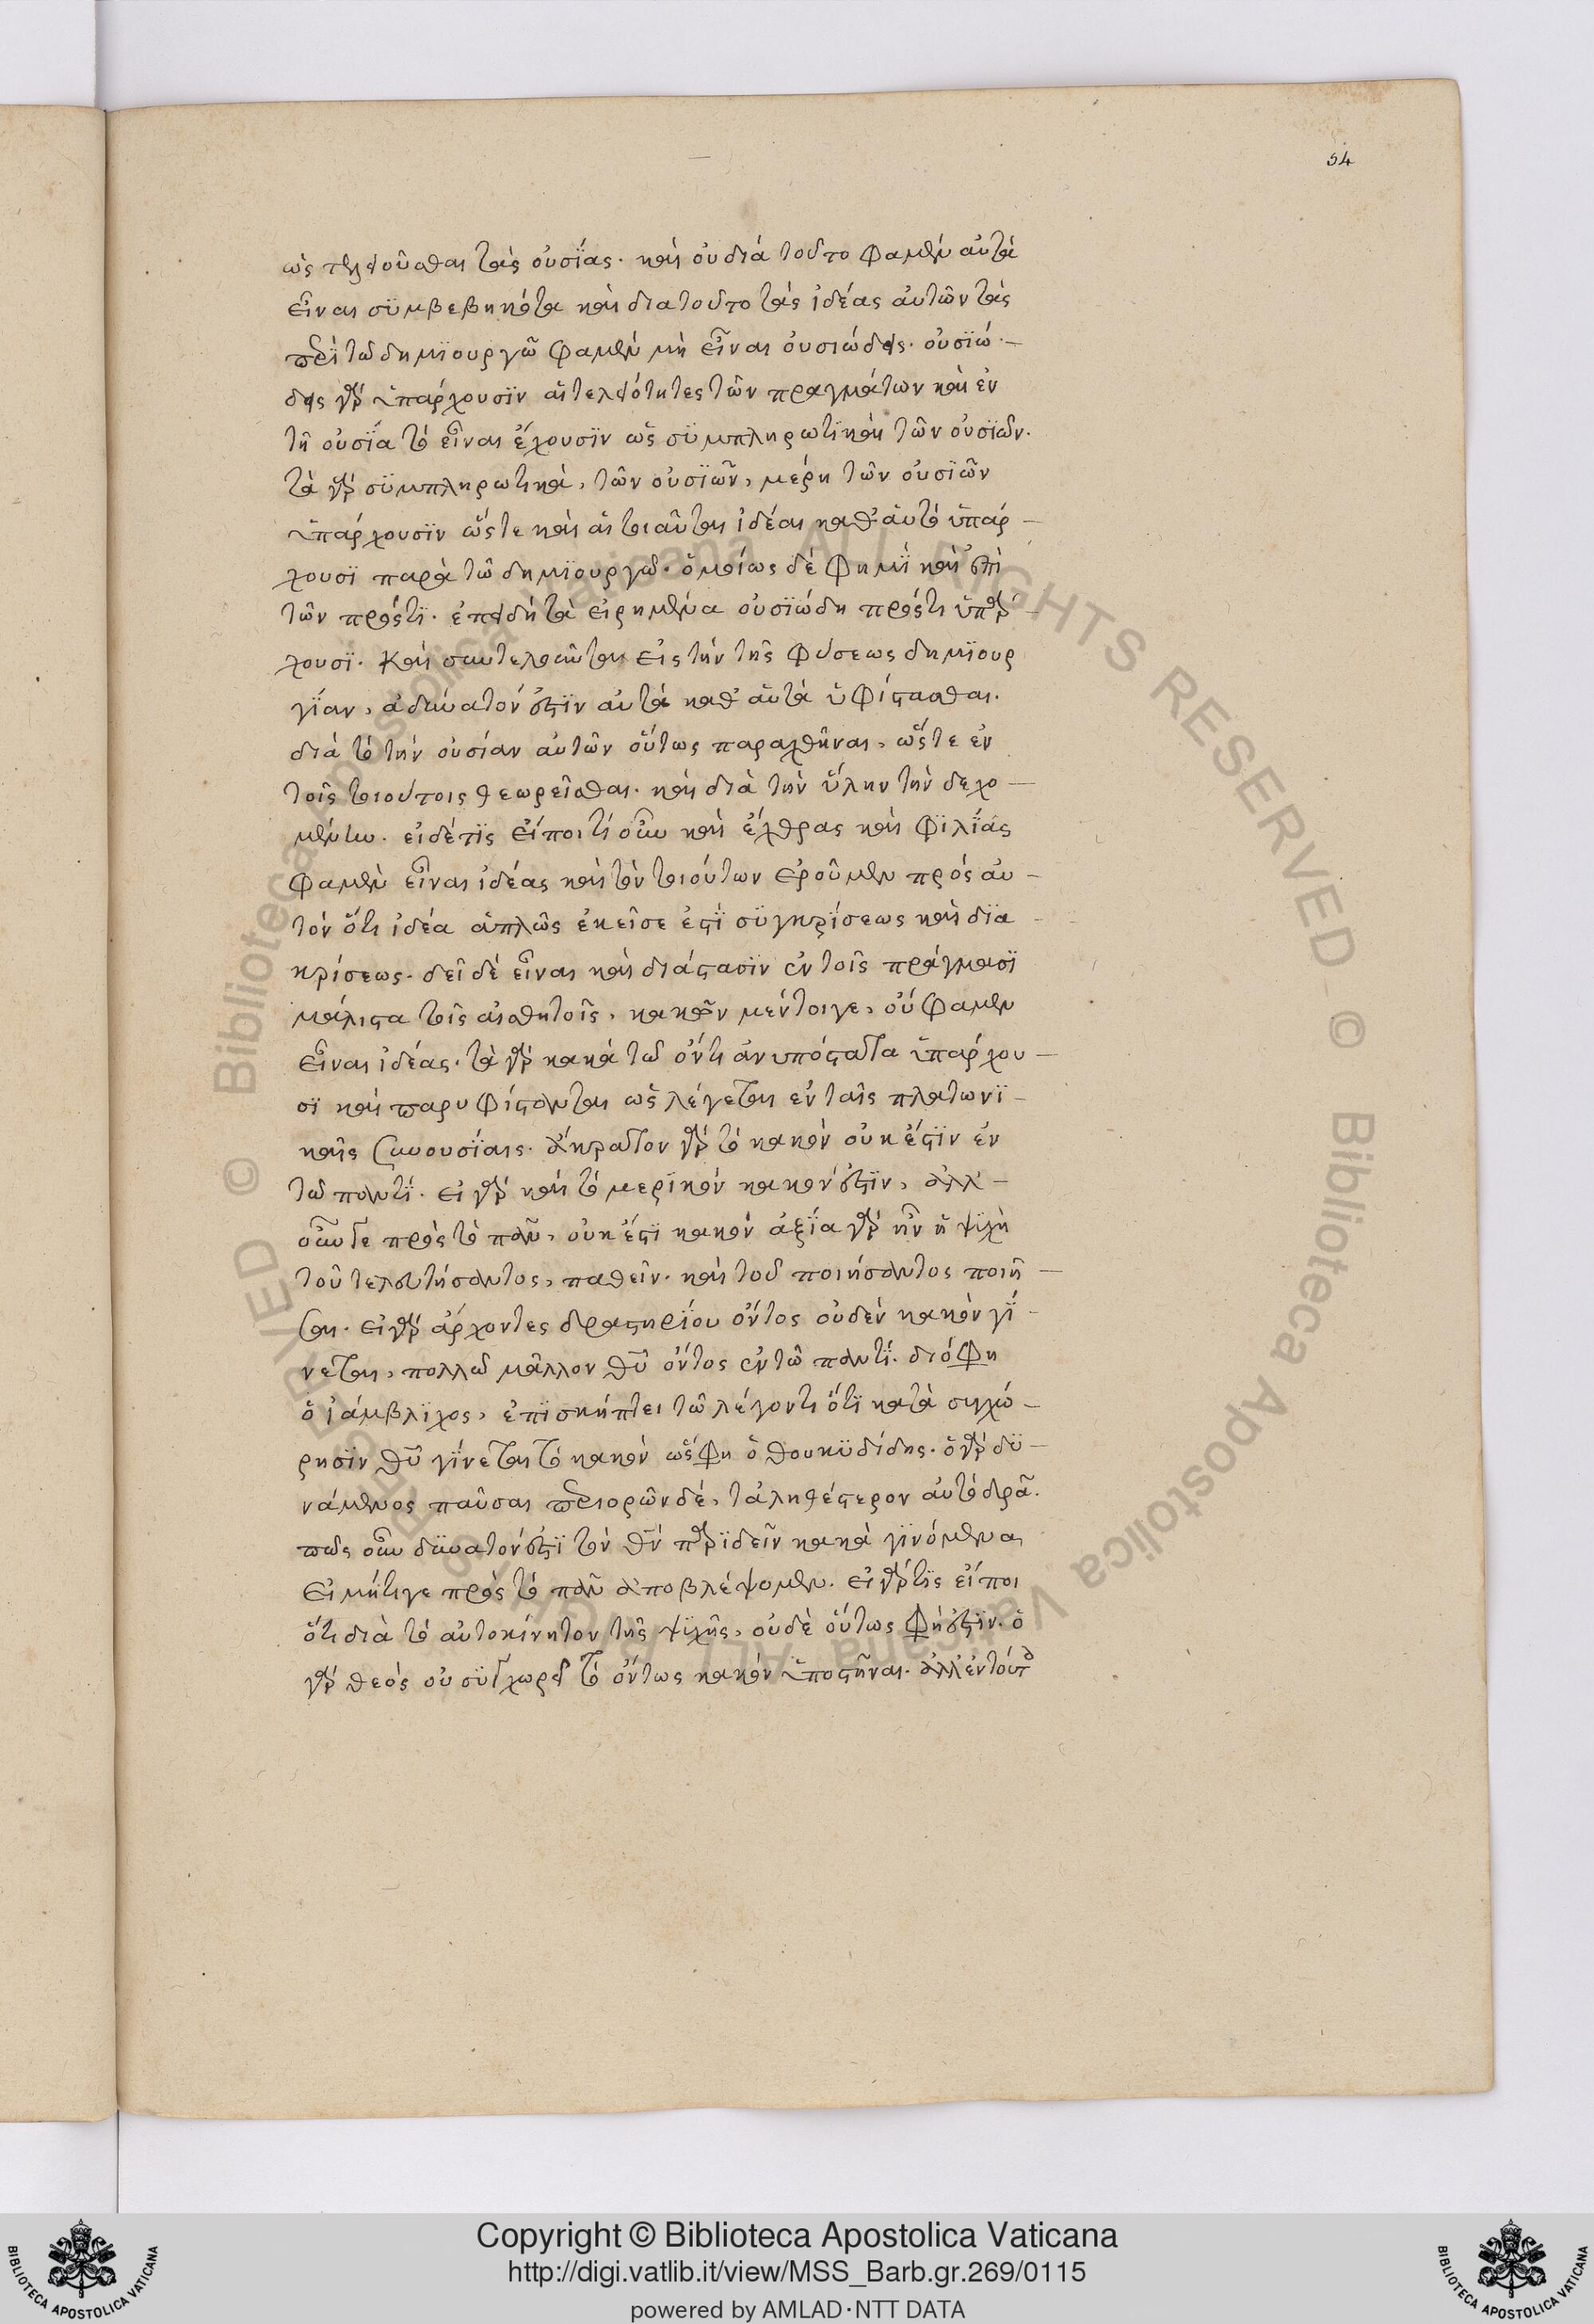 54
ὡς τελειοῦσθαι τὰς οὐσΐας. καὶ οὐ διά τοῦτο φαμὲν αὐτὰ
εἶναι σϋμβεβηκότα καὶ διατοῦτο τὰς ἰδέας αὐτῶν τὰς
παρὰ τῶ δημϊουργῶ φαμὲν μὴ εἶναι οὐσιώδεις. οὐσϊώ-
δεις γὰρ ὑπάρχουσϊν αἱ τελειότητες τῶν πραγμάτων καὶ ἐν
τῆ οὐσΐα τὸ εἶναι ἔχουσϊν ὡς σϋμπληρωτϊκαὶ τῶν οὐσϊῶν.
τὰ γὰρ σϋμπληρωτικὰ, τῶν οὐσϊῶν, μέρη τῶν οὐσϊῶν
ὑπάρχουσϊν ὥστε καὶ αἱ τοιαῦται ἰδέαι καθ' αὑτὸ ὑπάρ-
χουσϊ παρὰ τῶ δημϊουργῶ. ὁμοίως δὲ φημῒ καὶ ἐπὶ
τῶν πρόστϊ. ἐπειδὴ τὰ εἰρημένα οὐσϊώδη πρόστι ὑπάρ-
χουσϊ. Καὶ συντελοῦνται εἰς τὴν τῆς φύσεως δημϊουρ
γΐαν, ἀδύνατόν ἐστϊν αὐτὰ καθ' αὑτὰ ὑφίστασθαι.
διὰ τὸ τὴν οὐσίαν αὐτῶν οὕτως παραχθῆναι, ὥστε ἐν
τοῖς τοιούτοις θεωρεῖσθαι. καὶ διὰ τὴν ὕλην τὴν δεχο-
μένην. εἰδέτϊς εἴποι τί οὖν καὶ ἔχθρας καὶ φϊλΐας
φαμὲν εἶναι ἰδέας καὶ τῶν τοιούτων ἐροῦμεν πρὸς αὐ-
τὸν ὅτι ἰδέα ἁπλῶς ἐκεῖσε ἐστῒ σϋγκρΐσεως καὶ δϊα-
κρίσεως. δεῖ δὲ εἶναι καὶ διάστασϊν ἐν τοῖς πράγμασϊ
μάλιστα τοῖς αἰσθητοῖς, κακῶν μέντοιγε, οὔ φαμεν
εἶναι ἰδέας. τὰ γὰρ κακὰ τῶ ὄντι ἀνυπόστατα ὑπάρχου-
σϊ καὶ παρυφίστανται ὡς λέγεται ἐν ταῖς πλατωνϊ-
καῖς συνουσΐαις. ἄκρατον γὰρ τὸ κακὸν οὐκ ἔστϊν ἐν
τῶ παντΐ. εἰ γὰρ καὶ τὸ μερϊκὸν κακόν ἐστϊν, ἀλλ'-
οὖν γε πρὸς τὸ πᾶν, οὐκ ἔστϊ κακὸν ἀξΐα γὰρ ἦν ἡ ψϊχὴ
τοῦ τελευτήσαντος, παθεῖν. καὶ τοῦ ποιήσαντος ποιῆ-
σαι. εἰ γὰρ ἄρχοντες δραστηρΐου ὄντος οὐδὲν κακὸν γΐ-
νεται, πολλῶ μᾶλλον θῦ ὄντος ἐν τῶ παντΐ. διό φη
ὁ ἰάμβλϊχος, ἐπϊσκήπτει τῶ λέγοντι ὅτϊ κατὰ συγχώ-
ρησϊν θῦ γΐνεται τὸ κακὸν ὡς φη ὁ θουκϋδίδης. ὁ γὰρ δϋ-
νάμενος παῦσαι περιορῶν δέ, τἀληθέστερον αὐτὸ δρᾶ.
πῶς οὖν δϋνατόν ἐστϊ τὸν θν παρϊδεῖν κακὰ γϊνόμενα
εἰ μήτιγε πρὸς τὸ πᾶν ἀποβλέψομεν. εἰ γάρ τϊς εἴποι
ὅτι διὰ τὸ αὐτοκίνητον τῆς ψϊχῆς, οὐδὲ οὕτως φή ἐστϊν. ὁ
γὰρ θεὸς οὐ σϋγχωρεῖ τὸ ὄντως κακὸν ὑποστῆναι. ἀλλ' ἐντοὐπ
Copyright © Biblioteca Apostolica Vaticana
http://digi.vatlib.it/view/MSS_Barb.gr.269/0115
powered by AMLAD·NTT DATA